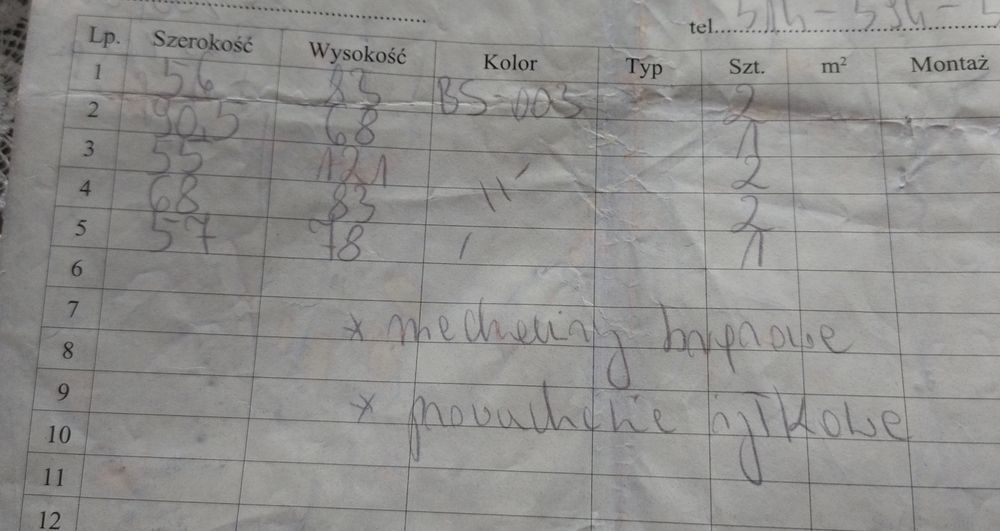 tel. 514-594-5
Lp. Szerokość Wysokość Kolor Typ Szt. m² Montaż
1 56 83 BS-003 2
2 90,5 68 1
3 55 121 2
4 68 83 2
5 57 78 1
6
7 * mechanizmy brązowe
8
9 * żyłkowe
10
11
12